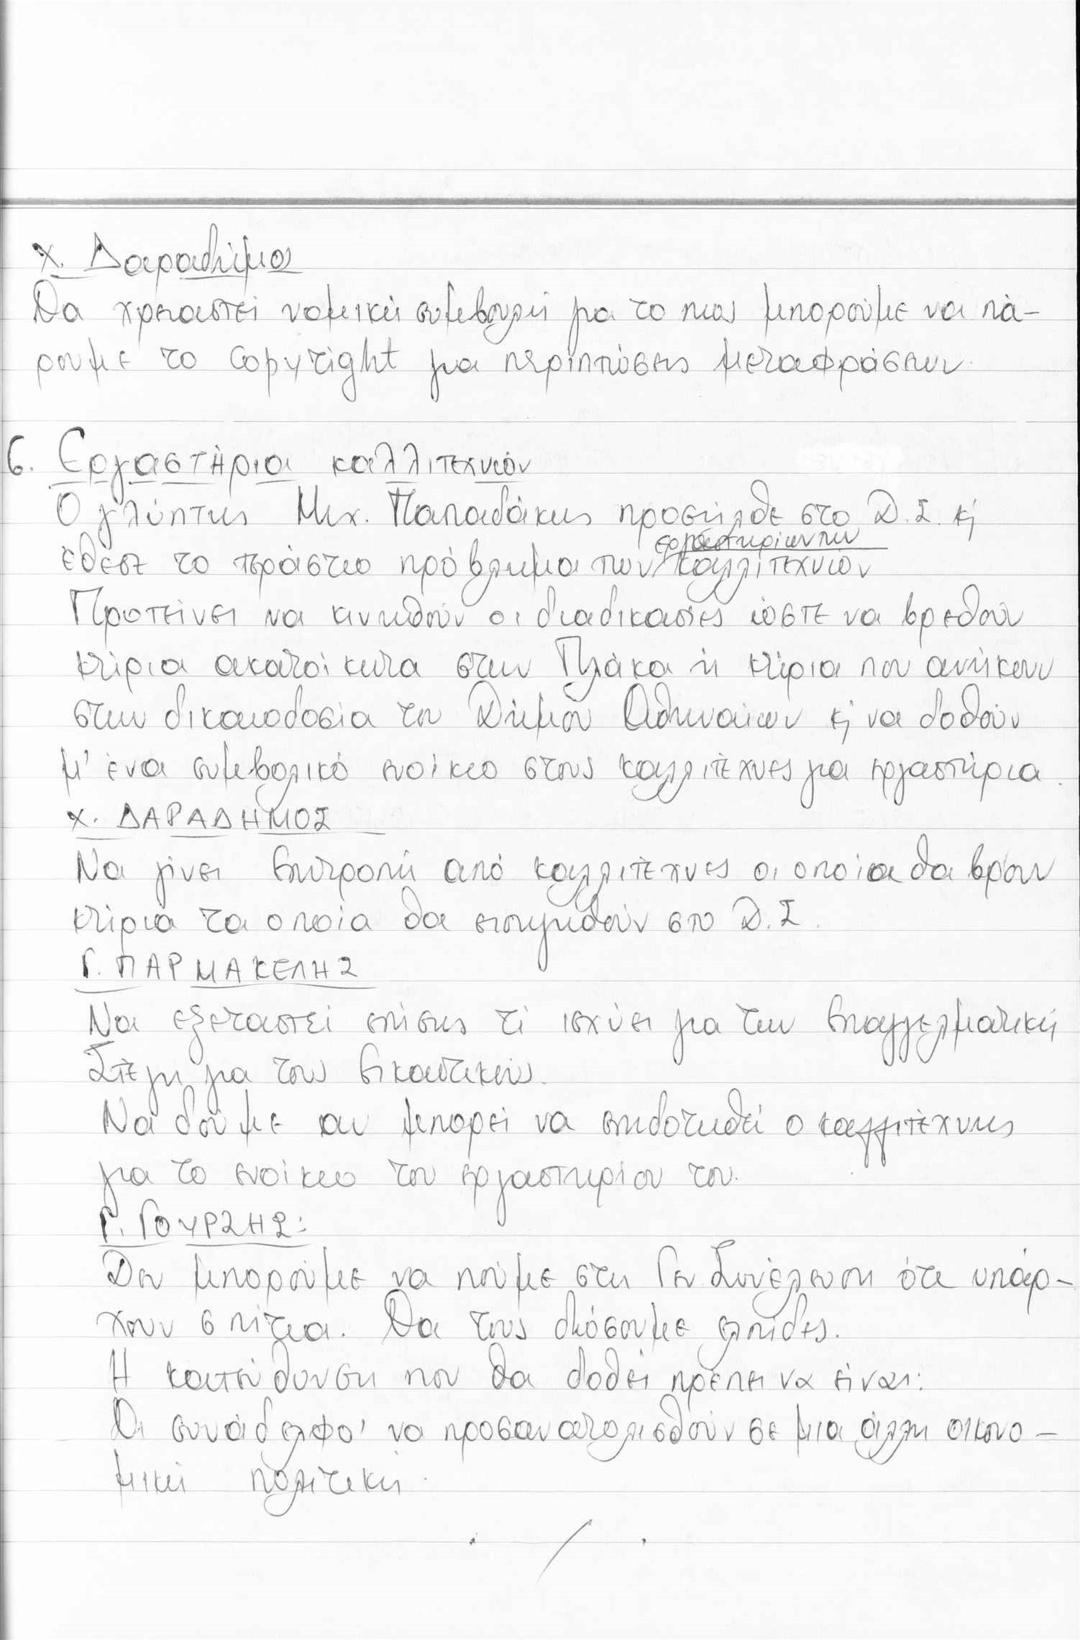 Χ. Δαραδήμος
Θα χρειαστεί νομική συμβουλή για το πως μπορούμε να πά-
ρουμε το Copyright για περιπτώσεις μεταφράσεων.
6. Εργαστήρια καλλιτεχνών
Ο γλύπτης Μιχ. Παπαδάκης προσήλθε στο Δ.Σ. κ'
εργαστηρίων των
έθεσε το τεράστιο πρόβλημα των καλλιτεχνών
Προτείνει να κινηθούν οι διαδικασίες ώστε να βρεθούν
κτίρια ακατοίκητα στην Πλάκα ή κτίρια που ανήκουν
στην δικαιοδοσία του Δήμου Αθηναίων κ' να δοθούν
μ' ένα συμβολικό ενοίκιο στους καλλιτέχνες για εργαστήρια.
Χ. ΔΑΡΑΔΗΜΟΣ
Να γίνει επιτροπή από καλλιτέχνες οι οποίοι θα βρουν
κτίρια τα οποία θα εισηγηθούν στο Δ.Σ.
Γ. ΠΑΡΜΑΚΕΛΗΣ
Να εξεταστεί επίσης τί ισχύει για την επαγγελματική
Στέγη για τους εικαστικούς.
Να δούμε αν μπορεί να επιδοτηθεί ο καλλιτέχνης
για το ενοίκιο του εργαστηρίου του.
Γ. ΓΟΥΡΖΗΣ:
Δεν μπορούμε να πούμε στη Γεν Συνέλευση ότι υπάρ-
χουν σπίτια. Θα τους δώσουμε ελπίδες.
Η κατεύθυνση που θα δοθεί πρέπει να είναι:
Οι συνάδελφοι να προσανατολισθούν σε μια άλλη οικονο-
μική πολιτική.